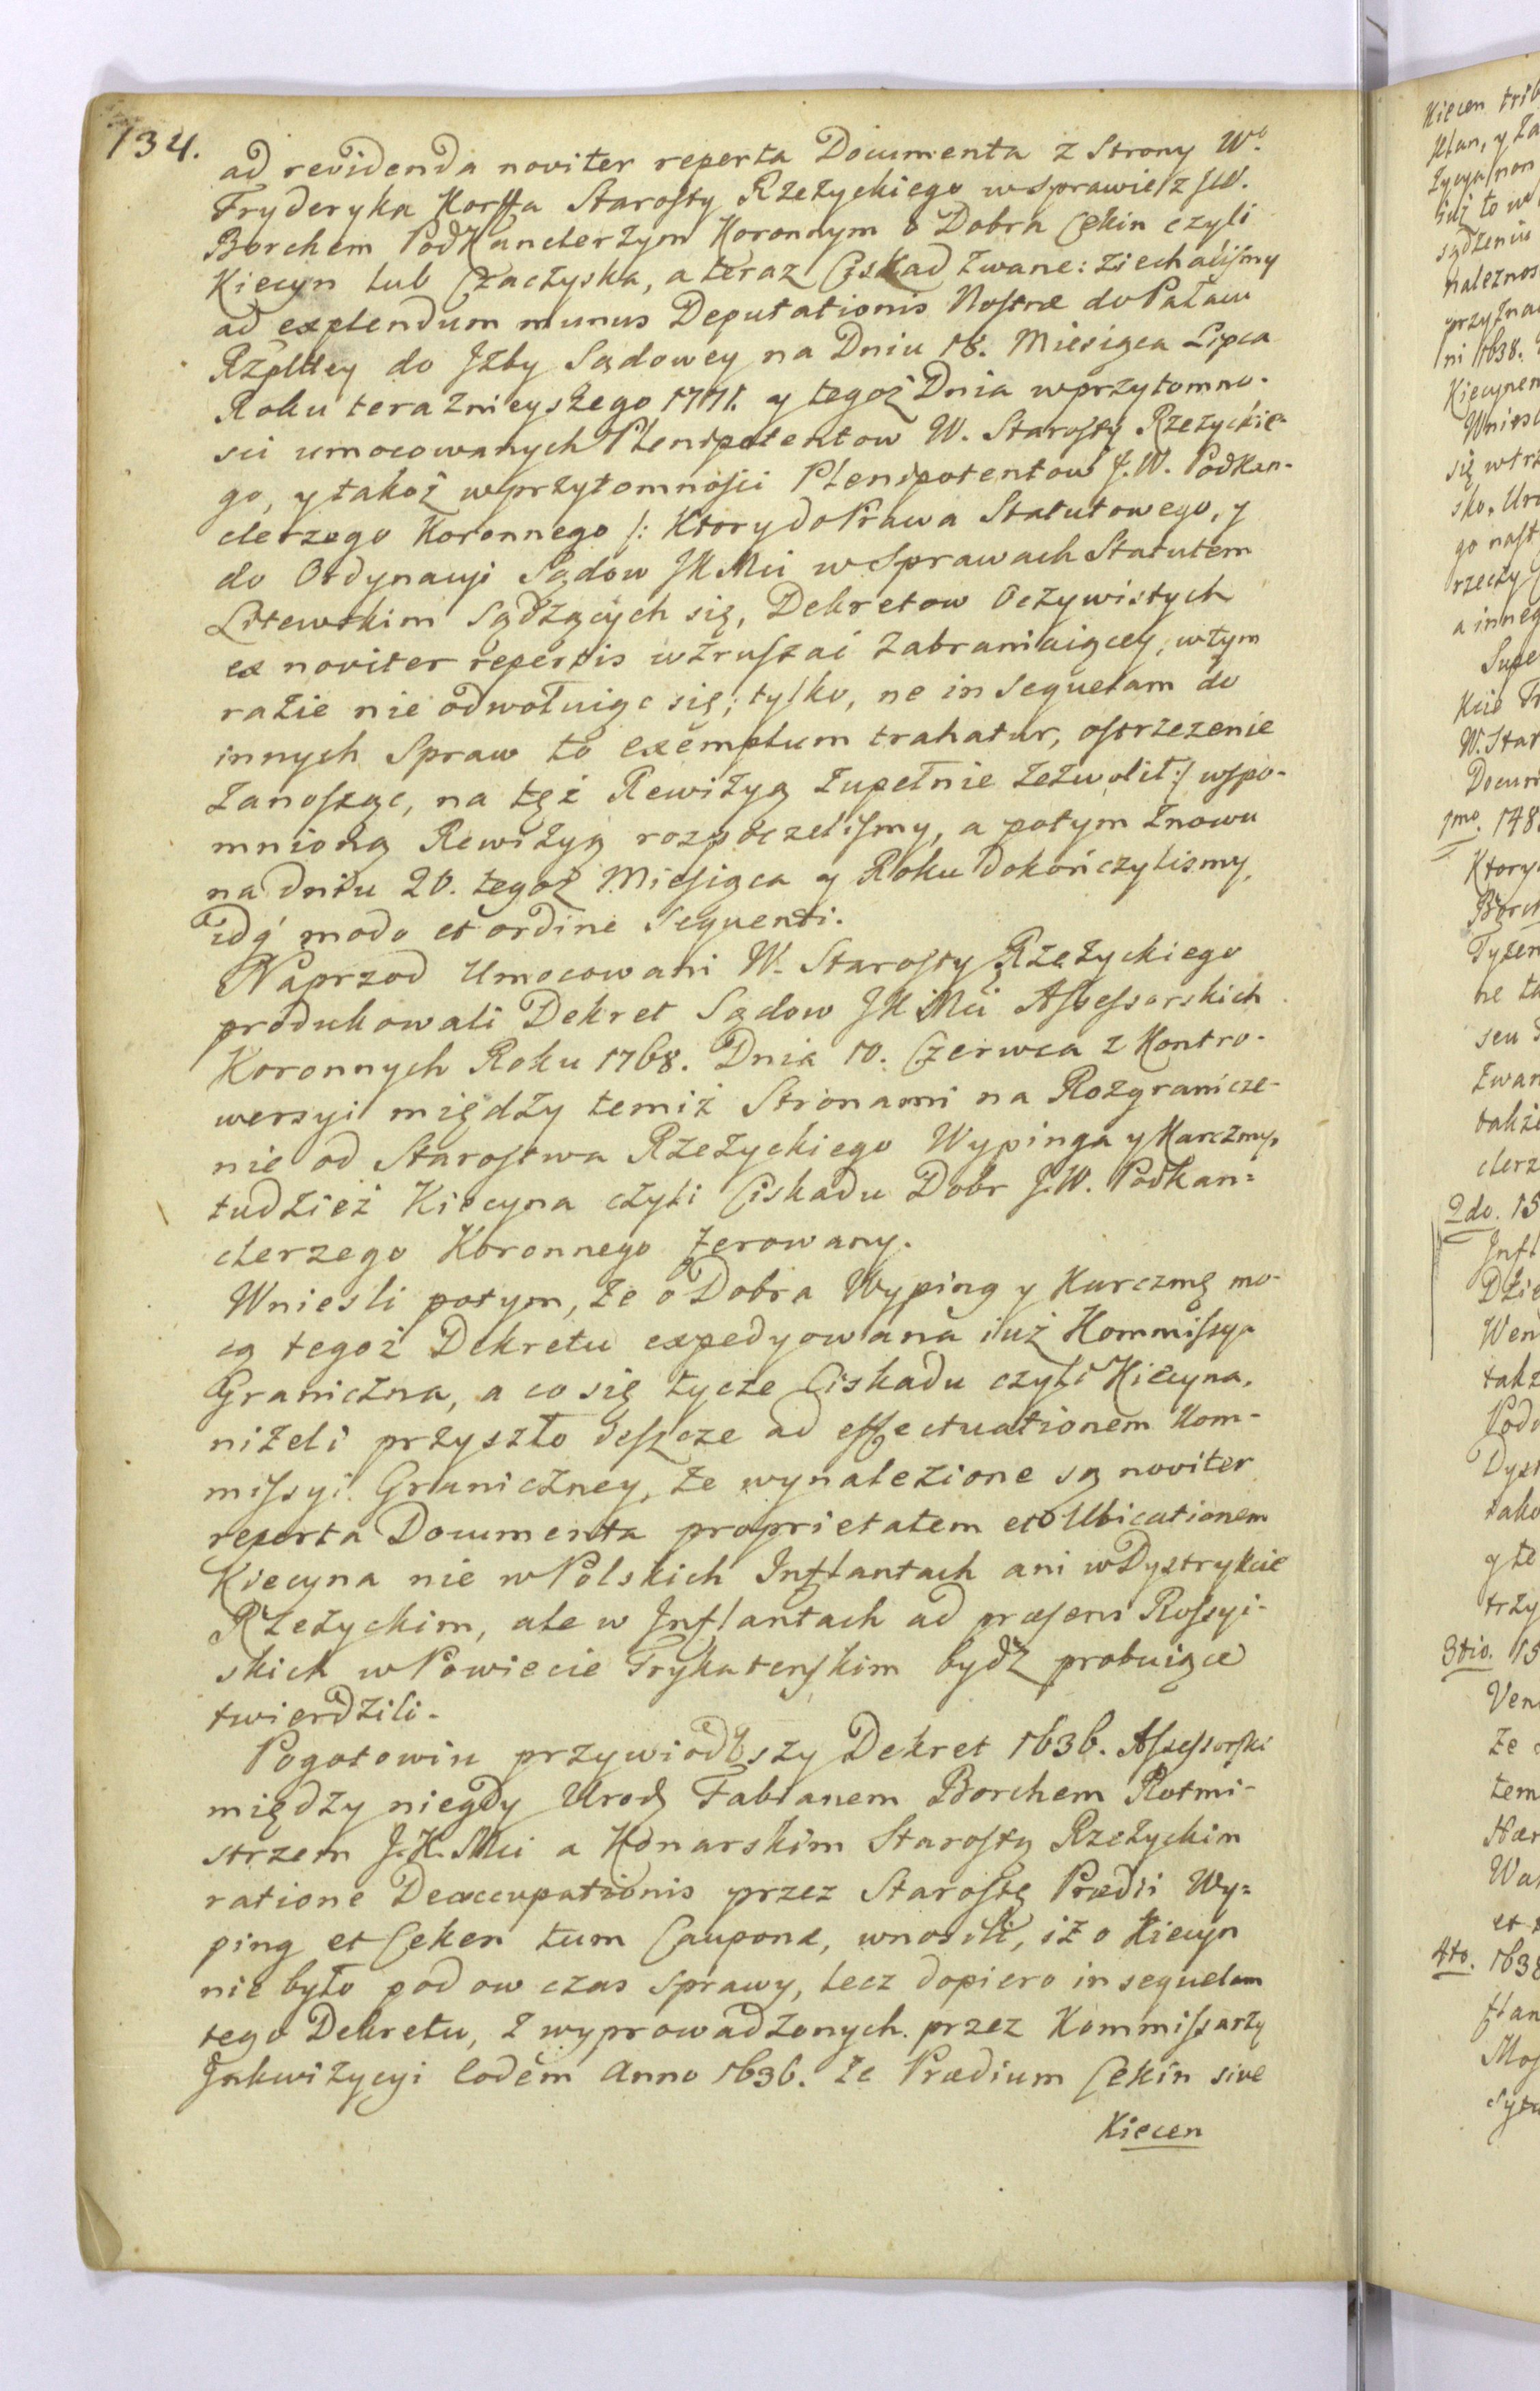 134.
ad revidenda noviter reperta Documenta z Strony Wo
Fryderyka Korffa Starosty Rzeżyckiego w sprawie z JW.
Borchem PodKanclerżym Koronnym o Dobra Cekin czyli
Kiecyn lub Czaczyska, a teraz Ciskad zwane: ziechaliśmy
ad explendum munus Deputationis Nostræ do Pałacu
Rzpltey do Jzby Sądowey na Dniu 18. Miesiąca Lipca
Roku teraznieyszego 1771. y tegoż Dnia w przytomno-
sci umocowanych Plenipotentow W. Starosty Rzeżyckie-
go, y takoż w przytomności Plenipotentow J.W. Podkan-
clerzego Koronnego /: Ktory do Prawa Statutowego, y
do Ordynacyi Sądow JKMci w Sprawach Statutem
Litewskim Sądzących się, Dekretow Oczywistych
ex noviter repertis wzruszać zabraniaiącey, w tym
razie nie odwołuiąc się; tylko, ne in Sequelam do
innych Spraw to exemplum trahatur, ostrzezenie
zanosząc, na tęż Rewizyą zupełnie zezwolił :/ wspo-
mnioną Rewizyą rozpoczeliśmy, a potym znowu
na dniu 20. tegoż Miesiąca y Roku dokończylismy,
idq modo et ordine Sequenti.
Naprzod Umocowani W. Starosty Rzeżyckiego
produkowali Dekret Sądow JKMci Assessorskich
Koronnych Roku 1768. Dnia 10. Czerwca z Kontro-
wersyi między temiż Stronami na Rozgranicze-
nie od Starostwa Rzeżyckiego Wypinga y Karczmy,
tudzież Kiecyna czyli Ciskadu Dobr J.W. Podkan=
clerzego Koronnego ferowany.
Wniesli potym, że o Dobra Wyping y Karczmę mo-
cą tegoż Dekretu expedyowana iuż Kommissya
Graniczna, a co się tycze Ciskadu czyli Kiecyna,
niżeli przyszło ieszcze ad effectuationem Kom-
missyi Graniczney, że wynalezione są noviter
reperta Documenta proprietatem et Ubicationem
Kiecyna nie w Polskich Inflantach ani w Dystrykcie
Rzeżyckim, ale w Inflantach ad præsens Rossyi-
skich w Powiecie Trykatenskim bydź probuiące
twierdzili.
Pogotowiu przywiodłszy Dekret 1636. Assessorski
między niegdy Urodz Fabianem Borchem Rotmi-
strzem J.K.Mci a Konarskim Starostą Rzeżyckim
ratione Deoccupationis przez Starostę Prædii Wy=
ping et Ceken tum Cauponæ, wnosili, iż o Kiecyn
nie było pod ow czas sprawy, lecz dopiero in sequelam
tego Dekretu, z wyprowadzonych przez Kommissarzy
Jnkwizycyi Eodem Anno 1636. że Prædium Cekin sive
Kiecen